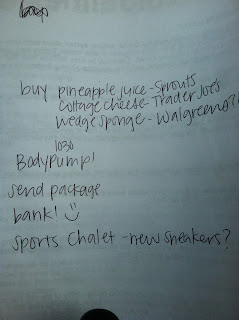 buy pineapple juice - Sprouts
cottage cheese - Trader Joe's
wedge sponge - Walgreens?!
1030
BodyPump!
send package
bank! :)
Sports Chalet - new sneakers?